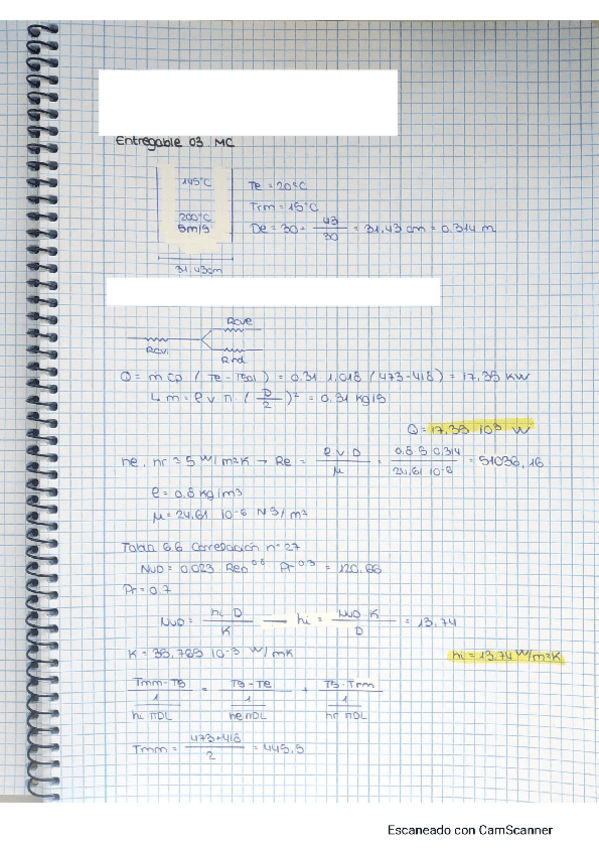 Entregable 03 MC
145°C
Te = 20°C
Trm = 15°C
200°C
5m/s
De = 30 + 43/30 = 31.43 cm = 0.314 m
31.43cm
Rcve
Rcvi
Rrd
Q = m cp (Te - Tsal) = 0.31 1,018 (473-418) = 17,35 KW
↳ m = ρ v π (D/2)² = 0,31 kg/s
Q = 17,35 10³ W
he, hr = 5 W/m²K → Re = ρ v D/μ = 0.8 5 0,314/24,61 10⁻⁶ = 51036,16
ρ = 0,8 kg/m³
μ = 24,61 10⁻⁶ N s/m²
Tabla 6.6 Correlación n° 27
NuD = 0,023 ReD^0.8 Pr^0.3 = 120,66
Pr = 0.7
NuD = hi D/K — hi = NuD K/D = 13,74
K = 35,785 10⁻³ W/mK
hi = 13,74 W/m²K
Tmm - Ts/(1/hi πDL) = Ts - Te/(1/he πDL) + Ts - Trm/(1/hr πDL)
Tmm = 473+418/2 = 445,5
Escaneado con CamScanner